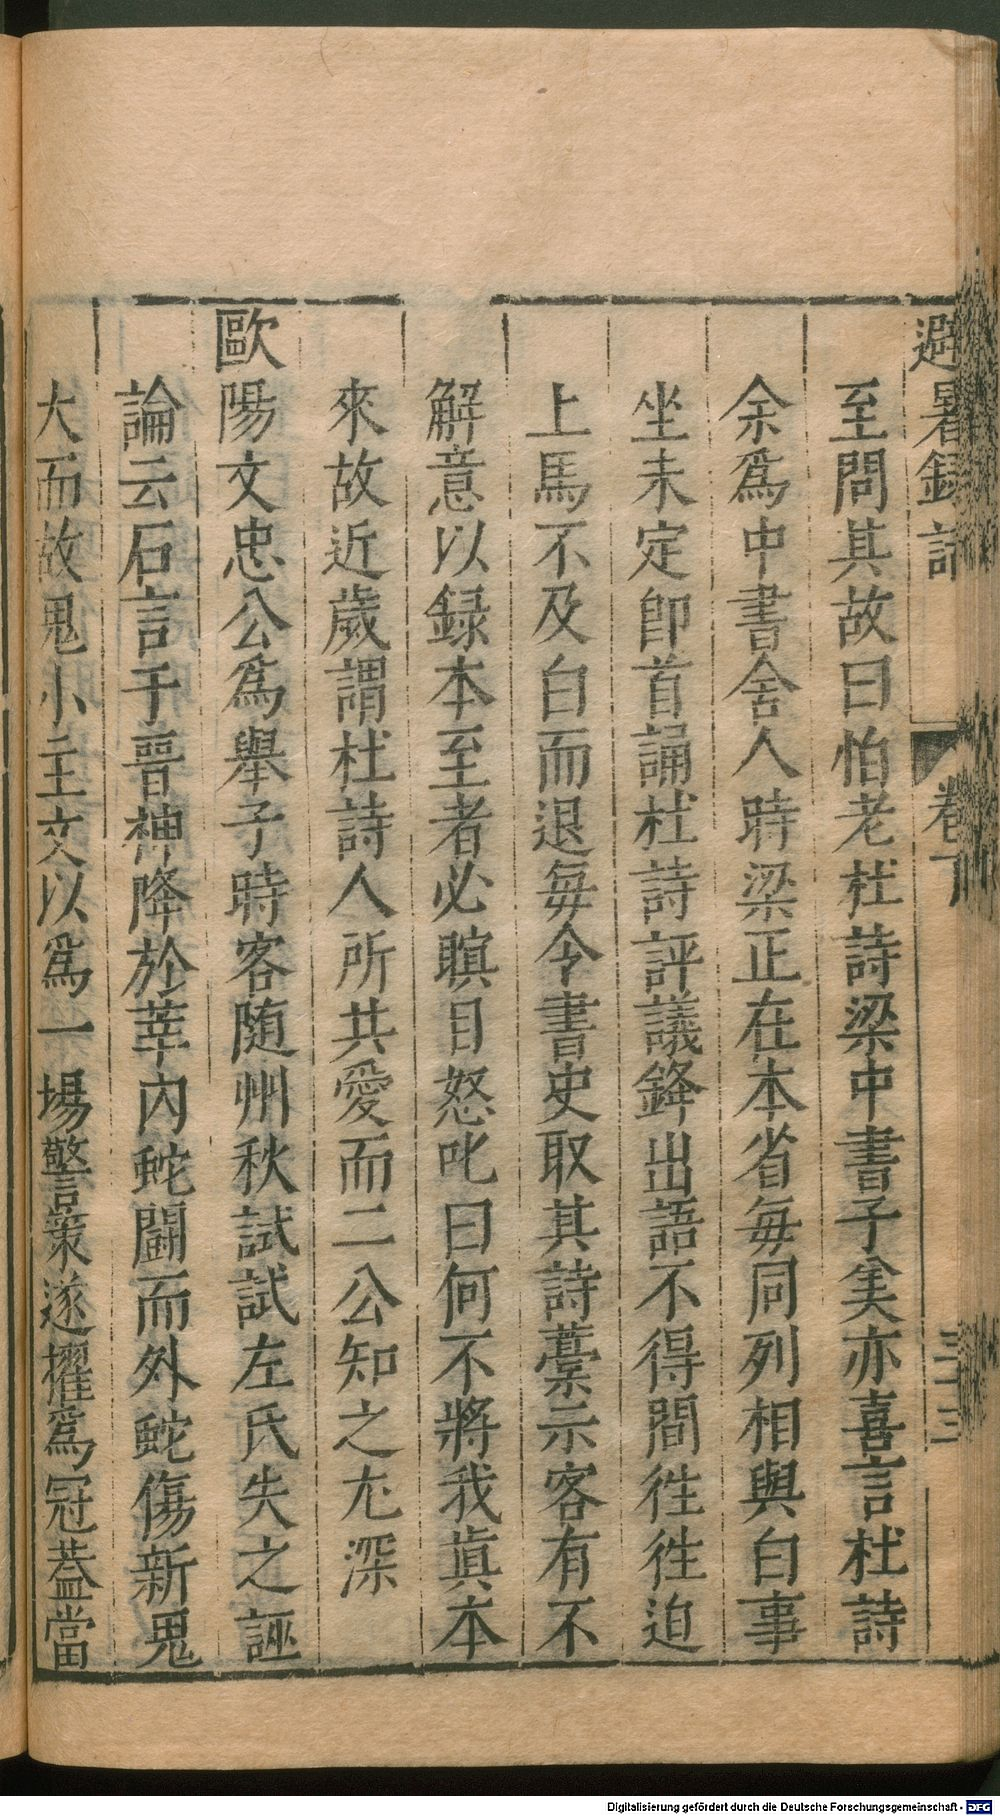 避暑録話 卷下 三三
至問其故曰怕老杜詩梁中書子美亦喜言杜詩
余爲中書舍人時梁正在本省每同列相與白事
坐未定卽首誦杜詩評議鋒出語不得間徃徃迫
上馬不及白而退每令書史取其詩藁示客有不
解意以録本至者必瞋目怒叱曰何不將我眞本
來故近歲謂杜詩人所共愛而二公知之尤深
歐陽文忠公爲舉子時客随州秋試試左氏失之誣
論云石言于晉神降於莘內蛇鬬而外蛇傷新鬼
大而故鬼小主文以爲一場警策遂擢爲冠蓋當
Digitalisierung gefördert durch die Deutsche Forschungsgemeinschaft - DFG